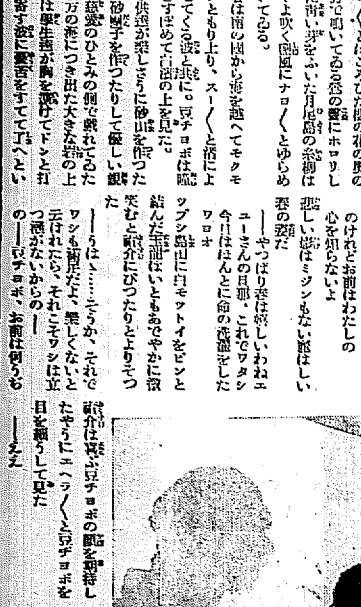 で鳴いてゐる蛩の聲にホロリし
てゐる。
青い芽をふいた月尾島の糸柳は
よ吹く風にナヨ／＼とゆらめ
は南の國から海を越へてモクモ
ともり上り、スー／＼と渚によ
てくる波と共に。豆チヨボは瞼
すぼめて白濱の上を見た。
供達が樂しさうに砂山を作つた
砂團子を作つたりして優しい親
慈愛のひとみの側で戲れてゐた
方の海につき出た大きな岩の上
は學生達が胸を擴げてドンと打
寄す波に憂苦をすてて丁へとい
のけれどお前はわたしの
心を知らないよ
悲しい影はミジンもない朧はしい
春の姿だ
——やつぱり春は嬉しいわねエ
ユーさんの旦那、これでワタシ
今日はほんとに命の洗濯をした
ワヨオ
ツブシ島田に白モツトイをピンと
結んだ玉龍はいともあでやかに微
笑むと紹介にぴつたりとよりそつ
た
——うはゝ……そうか、それで
ワシも滿足だよ、樂しくないと
云はれたら、それこそワシは立
つ瀬がないからの——
の——豆チヨボ、お前は何うぢ
紹介は喜ぶ豆チヨボの顏を期待し
たやうにエヘラ／＼と豆チヨボを
目を細うして見た
——ええ